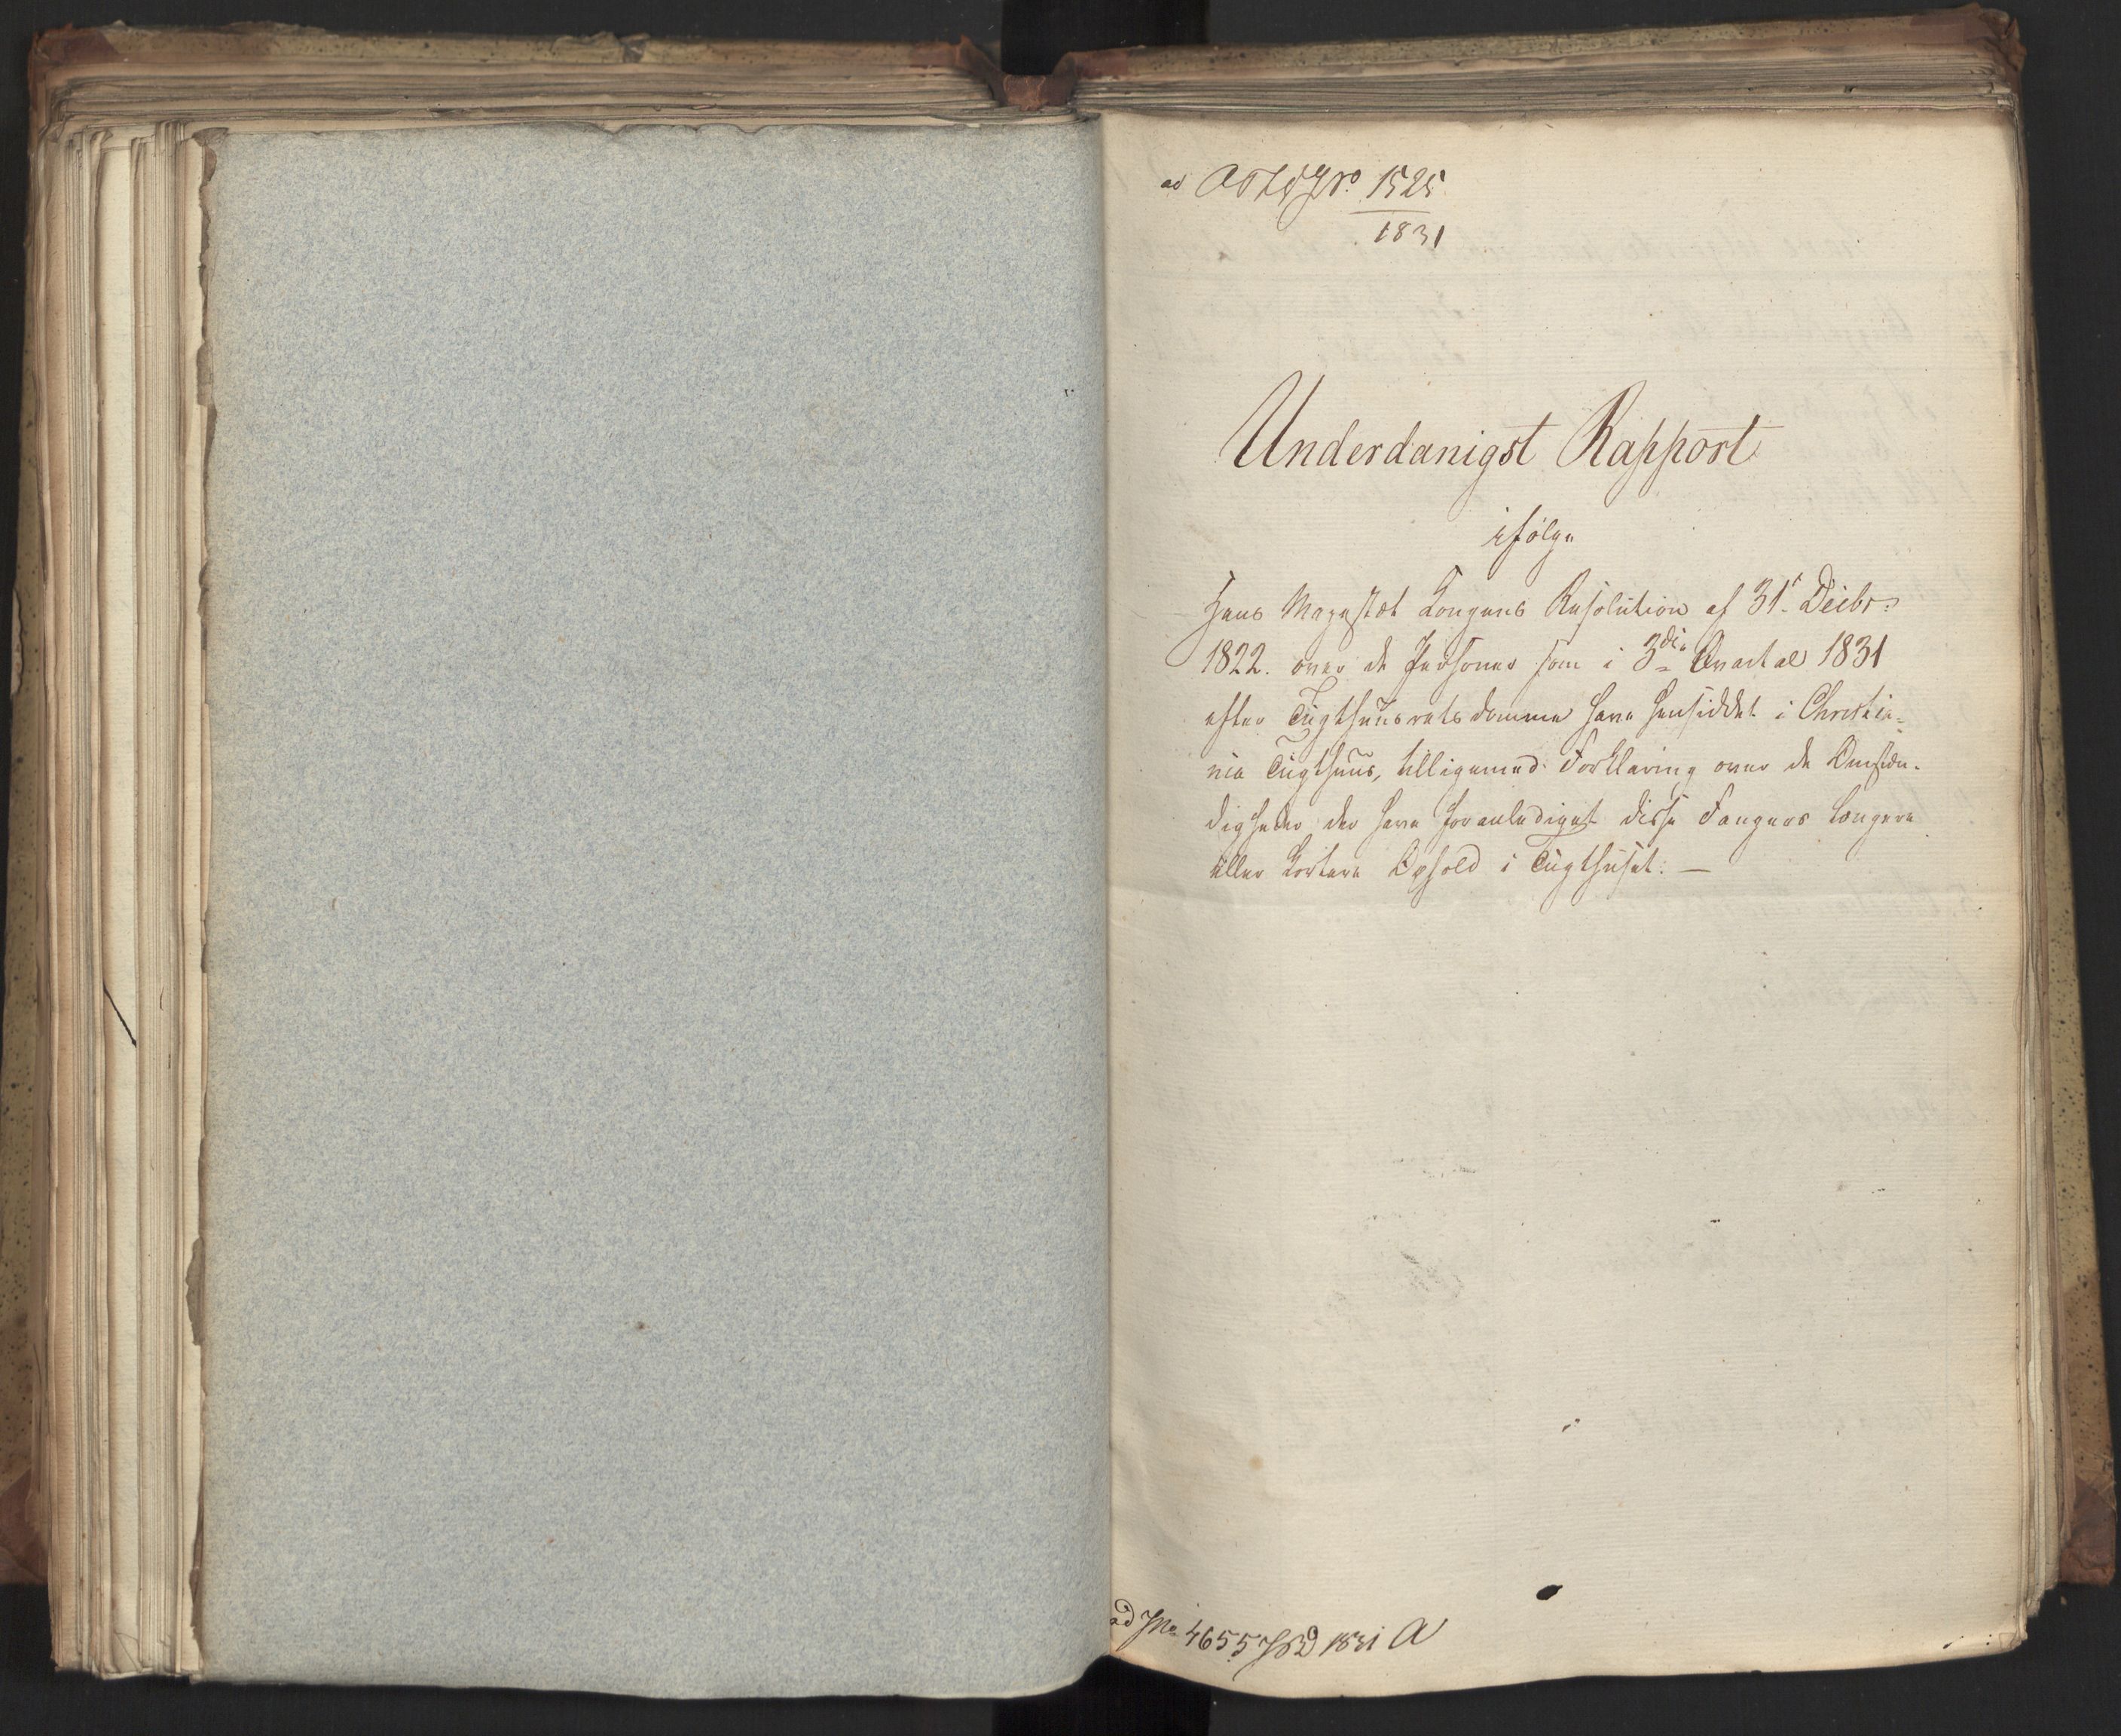 ad
1525
1831
Underdanigst Rapport
ifølge
Hans Majestæt Kongens Resolution af 31te Decbr:
1822. over de Personer som i 3die Qvartal 1831
efter Tugthuusrets domme have hensiddet i Christia-
nia Tugthuus, tilligemed Forklaring over de Omstæn-
digheder der have foranlediget disse Fangers længere
eller kortere Ophold i Tugthuset. —
ad JNo 4655 1831 A